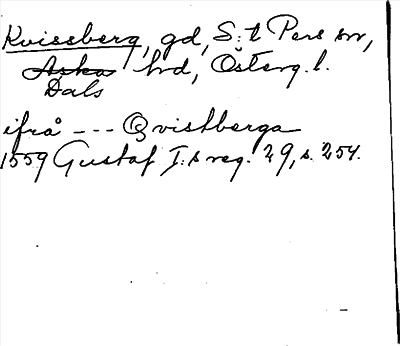 Kvissberg, gd, S:t Pers sn,
Aska hrd, Österg.l.
Dals
ifrå --- Qvistberga
1559 Gustaf I:s reg. 29, s. 254.